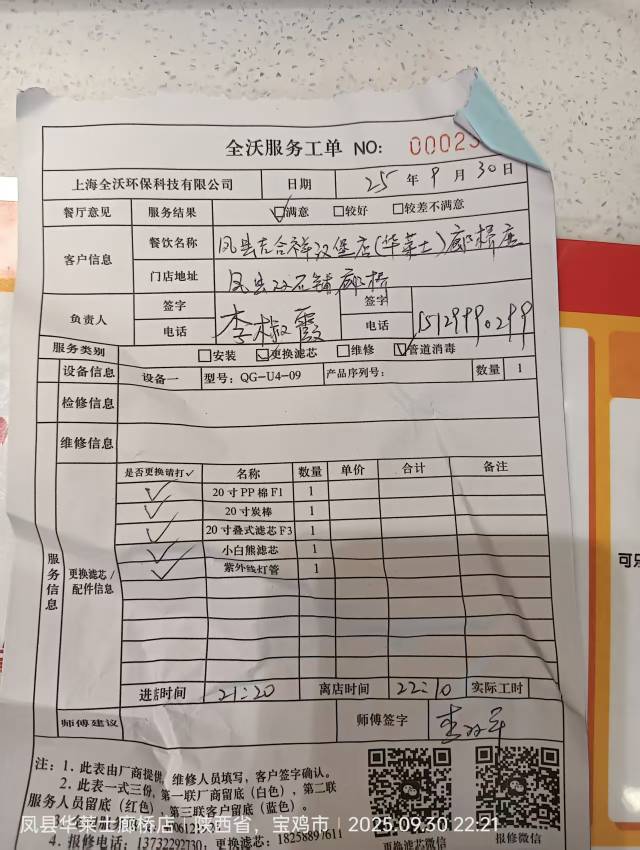 全沃服务工单 NO: 00023
上海全沃环保科技有限公司 日期 25 年 9 月 30 日
餐厅意见 服务结果 ☑满意 □较好 □较差不满意
客户信息 餐饮名称 凤县吉合祥汉堡店(华莱士)廊桥店
门店地址 凤县双石铺廊桥
负责人 签字 签字
电话 电话 15129990299
服务类别 □安装 ☑更换滤芯 □维修 ☑管道消毒
设备信息 设备一 型号: QG-U4-09 产品序列号: 数量 1
检修信息
维修信息
服务信息 更换滤芯/配件信息
是否更换请打✓ 名称 数量 单价 合计 备注
✓ 20寸PP棉F1 1
✓ 20寸炭棒 1
✓ 20寸叠式滤芯F3 1
✓ 小白熊滤芯 1
✓ 紫外线灯管 1
进店时间 21:20 离店时间 22:10 实际工时
师傅建议 师傅签字
注: 1、此表由厂商提供, 维修人员填写, 客户签字确认。
2、此表一式三份, 第一联厂商留底(白色), 第二联
服务人员留底(红色), 第三联客户留底(蓝色)。
4、报修电话: 13732292730; 更换滤芯: 18258897611
更换滤芯微信 报修微信
凤县华莱士廊桥店 | 陕西省, 宝鸡市 | 2025.09.30 22:21
可乐